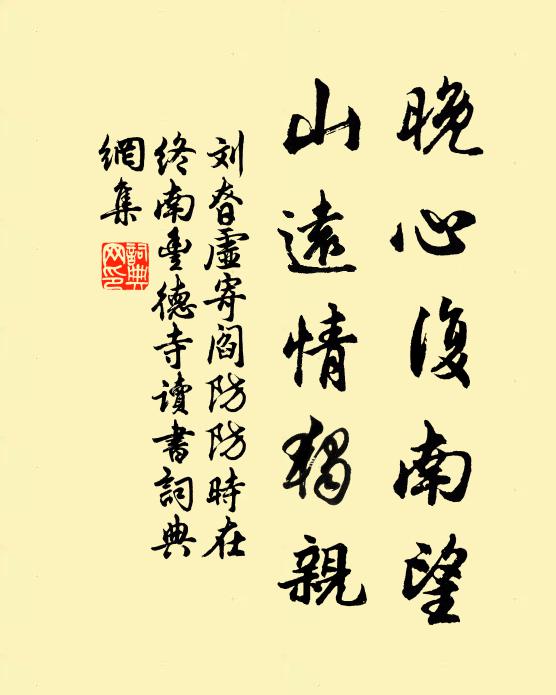 晚心復南望
山遠情獨親
刘眘虛寄阎防防時在
终南豊德寺讀書詞典
網集
詞典網印